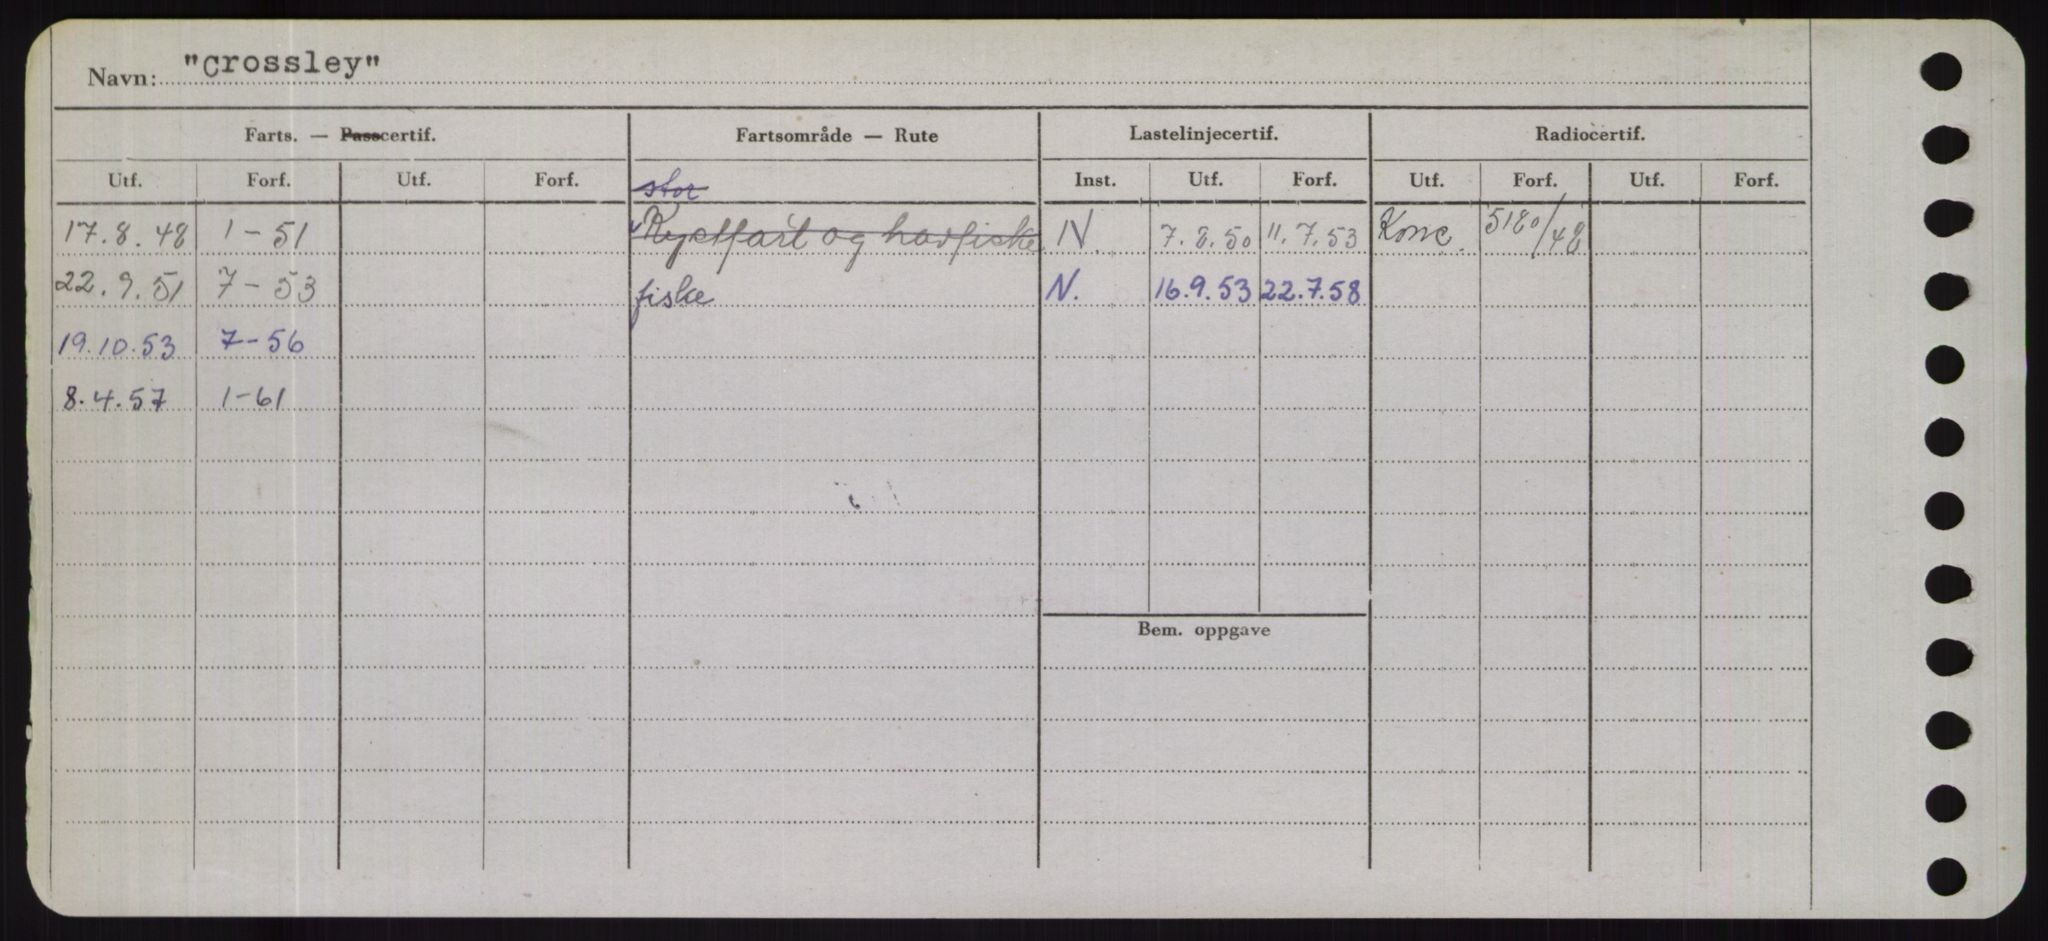 Navn: "Crossley"
Farts. — Passcertif. Fartsområde — Rute Lastelinjecertif. Radiocertif.
Utf. Forf. Utf. Forf. stor Inst. Utf. Forf. Utf. Forf. Utf. Forf.
17.8.48 1-51 Kystfart og havfiske N. 7.8.50 11.7.53 Konc. 5180/48
22.9.51 7-53 fiske N. 16.9.53 22.7.58
19.10.53 7-56
8.4.57 1-61
Bem. oppgave